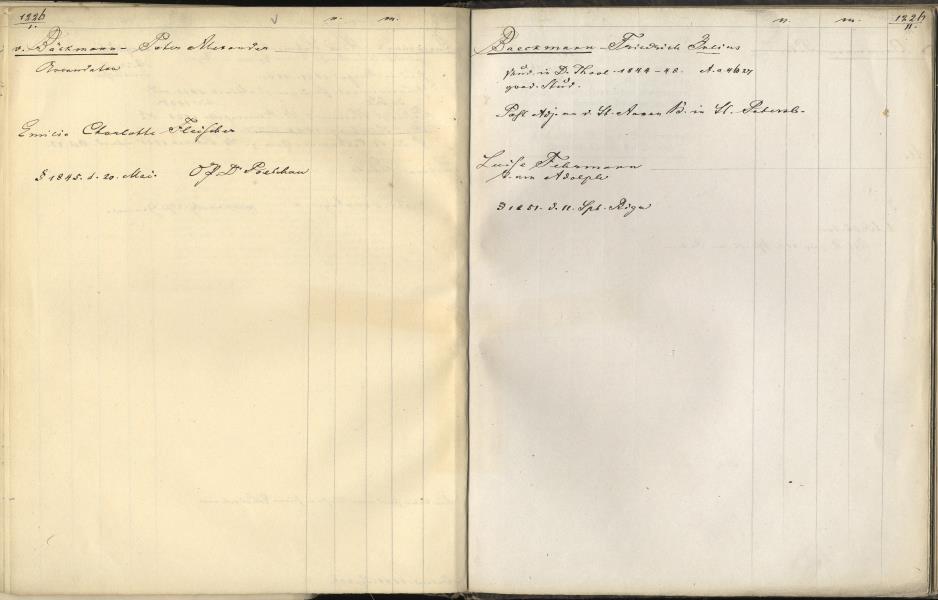 1226
I.
v. m.
v. Bäckmann - Peter Alexander
Arrendator
Emilie Charlotte Fleischer
1845. d. 20. Mai. Dr Poelchau
v. m. 1226
II.
Baeckmann - Friedrich Julius
Stud. in D. Theol. 1844-48. A. a 4627
grad. Stud.
Past. Adj. an d. St. Annen K. in St. Petersb.
Luise Fehrmann
Adolph
1851. d. 11. Spt. Riga